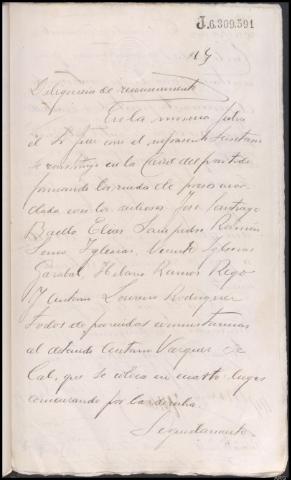 J.6.309.591
Diligencia de reconocimiento
En la misma fecha
el Sr Juez con el infrascrito Secretario
se constituyó en la Carcel del partido
formando la rueda de presos acor
dada con los reclusos José Santiago
Baello Elias Sampedro Ramón
Senra Iglesias, Vicente Iglesias
Garabal Hilario Ramos Rego
y Antonio Loureiro Rodriguez
todos de parecidas circunstancias
al detenido Antonio Vazquez de
Cal, que se coloca en cuarto lugar
comenzando por la derecha.
Seguidamente